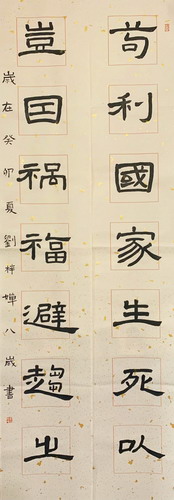 苟利國家生死以
豈因祸福避趨之
歲在癸卯夏劉梓嬋八歲書